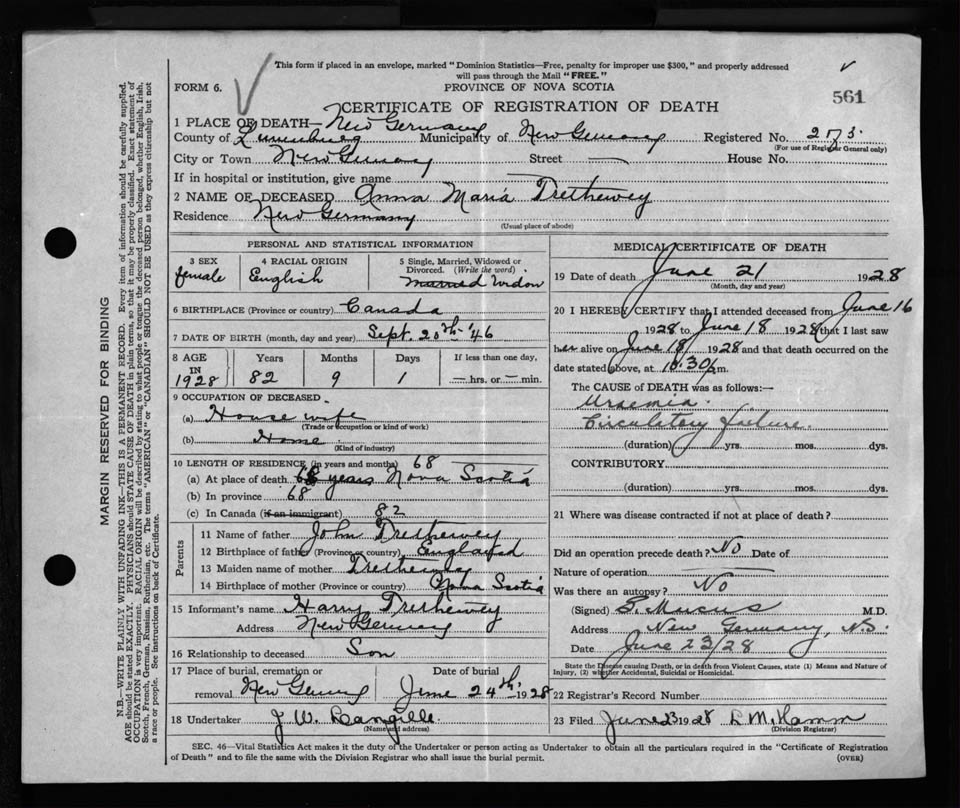 This form if placed in an envelope, marked "Dominion Statistics—Free, penalty for improper use $300," and properly addressed
will pass through the Mail "FREE."
FORM 6.
PROVINCE OF NOVA SCOTIA
561
CERTIFICATE OF REGISTRATION OF DEATH
1 PLACE OF DEATH— New Germany
County of Lunenburg Municipality of New Germany Registered No. 273.
(For use of Registrar General only)
City or Town New Germany Street — House No.
If in hospital or institution, give name
2 NAME OF DECEASED Anna Maria Trethewey
Residence New Germany
(Usual place of abode)
PERSONAL AND STATISTICAL INFORMATION
3 SEX female
4 RACIAL ORIGIN English
5 Single, Married, Widowed or Divorced. (Write the word) Married Widow
6 BIRTHPLACE (Province or country) Canada
7 DATE OF BIRTH (month, day and year) Sept. 20th '46
8 AGE IN 1928 Years 82 Months 9 Days 1 If less than one day, — hrs. or — min.
9 OCCUPATION OF DECEASED
(a) House wife
(Trade or occupation or kind of work)
(b) Home
(Kind of industry)
10 LENGTH OF RESIDENCE (in years and months) 68
(a) At place of death 68 years Nova Scotia
(b) In province 68
(c) In Canada (if an immigrant) 82
Parents
11 Name of father John Trethewey
12 Birthplace of father (Province or country) England
13 Maiden name of mother Trethewey
14 Birthplace of mother (Province or country) Nova Scotia
15 Informant's name Harry Trethewey
Address New Germany
16 Relationship to deceased Son
17 Place of burial, cremation or removal New Germany Date of burial June 24th, 1928
18 Undertaker J. W. Langille
(Name and address)
MEDICAL CERTIFICATE OF DEATH
19 Date of death June 21 1928
(Month, day and year)
20 I HEREBY CERTIFY that I attended deceased from June 16
1928 to June 18 1928 that I last saw
her alive on June 18 1928 and that death occurred on the
date stated above, at 10.30 p.m.
The CAUSE of DEATH was as follows:—
Uraemia.
Circulatory failure.
(duration) yrs. mos. dys.
CONTRIBUTORY
(duration) yrs. mos. dys.
21 Where was disease contracted if not at place of death?
Did an operation precede death? No Date of
Nature of operation
Was there an autopsy? No
(Signed) M.D.
Address New Germany, N.S.
Date June 23/28
State the Disease causing Death, or in death from Violent Causes, state (1) Means and Nature of
Injury, (2) whether Accidental, Suicidal or Homicidal.
22 Registrar's Record Number
23 Filed June 23 1928 L M Hamm
(Division Registrar)
SEC. 46—Vital Statistics Act makes it the duty of the Undertaker or person acting as Undertaker to obtain all the particulars required in the "Certificate of Registration
of Death" and to file the same with the Division Registrar who shall issue the burial permit.
(OVER)
MARGIN RESERVED FOR BINDING
N.B.—WRITE PLAINLY WITH UNFADING INK—THIS IS A PERMANENT RECORD. Every item of information should be carefully supplied.
AGE should be stated EXACTLY. PHYSICIANS should STATE CAUSE OF DEATH in plain terms, so that it may be properly classified. Exact statement of
OCCUPATION is very important. RACIAL ORIGIN will be described by stating to what people or tongue the deceased person belonged, whether English, Irish,
Scotch, French, German, Russian, Ruthenian, etc. The terms "AMERICAN" or "CANADIAN" SHOULD NOT BE USED as they express citizenship but not
a race or people. See instructions on back of Certificate.